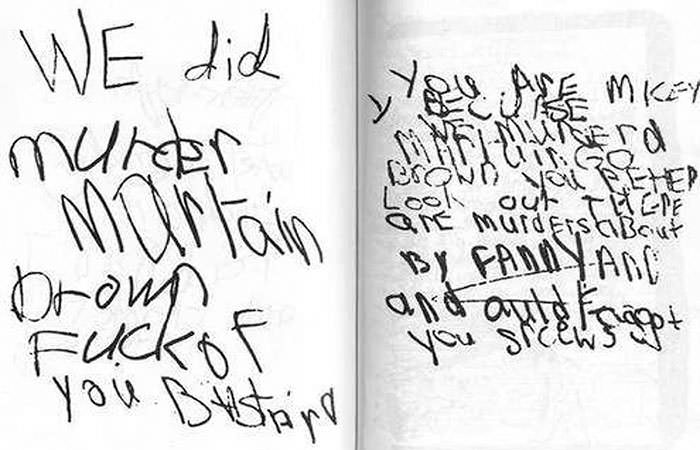 WE did
murder
martain
brown
FUCKoF
you BAstard
You ArE MICEY
y BECUASE
WE MurdErd
MARtAin GO
BrowN you BEtEr
Look out THErE
arE murdErs about
By FANNY AND
and auld Faggot
you srcews